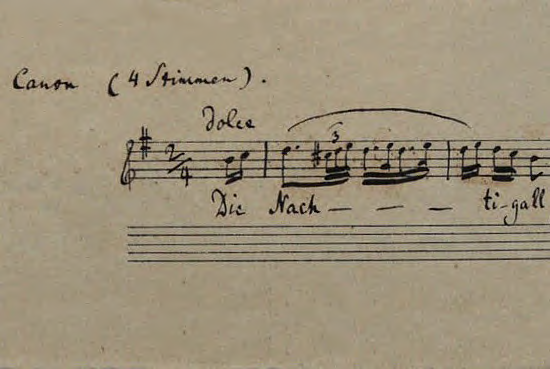 Canon (4 Stimmen).
dolce
3
2/4
Die Nach - - - ti-gall